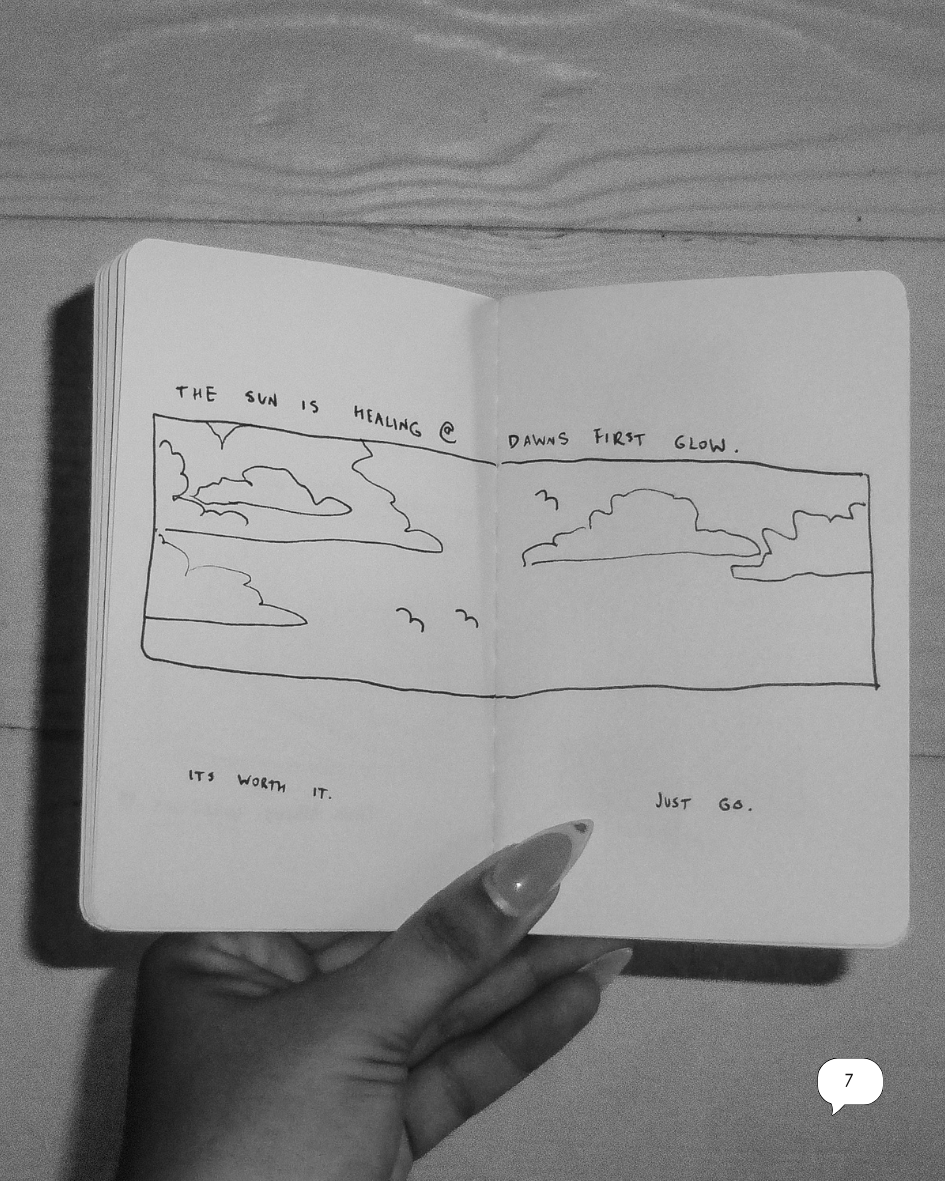 THE SUN IS HEALING @ DAWNS FIRST GLOW.
ITS WORTH IT.
JUST GO.
7